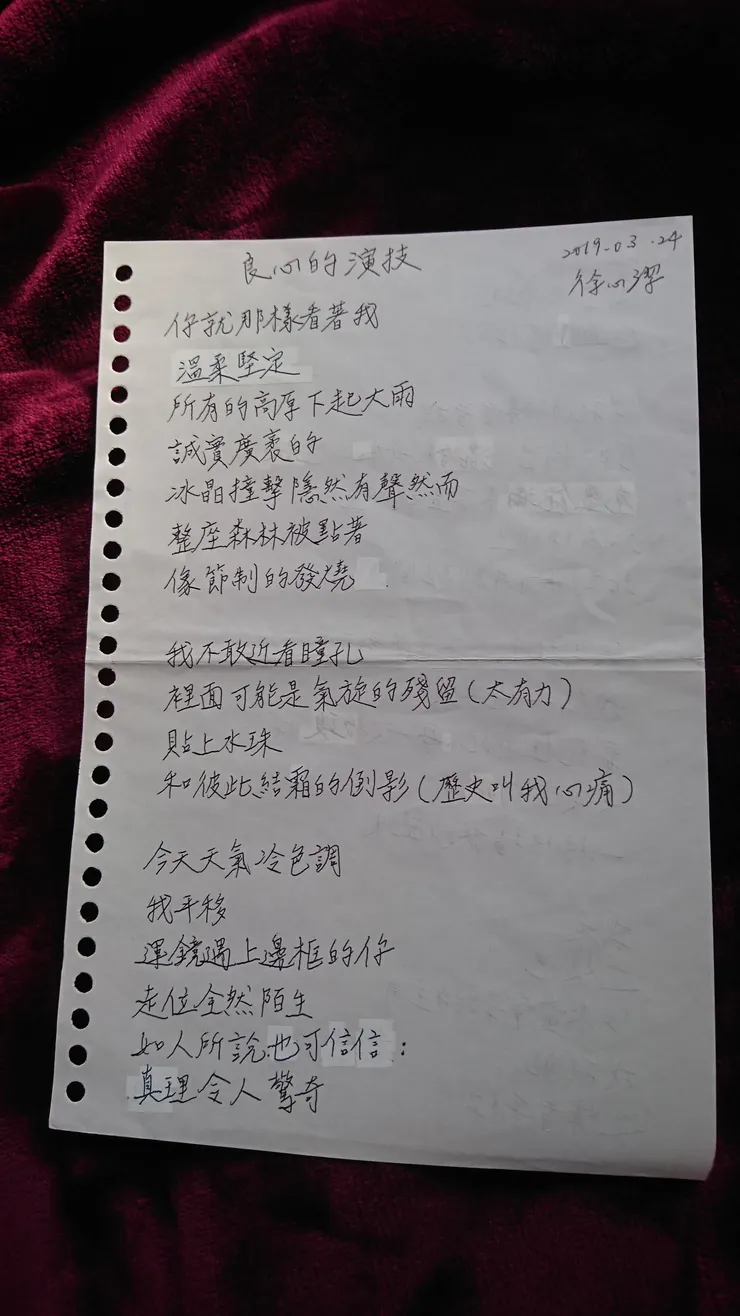 良心的演技
2019-03.24
徐心潔
你就那樣看著我
溫柔堅定
所有的高原下起大雨
誠實廣袤的
冰晶撞擊隱然有聲然而
整座森林被點著
像節制的發燒
我不敢近看瞳孔
裡面可能是氣旋的殘留(太有力)
貼上水珠
和彼此結霜的倒影(歷史叫我心痛)
今天天氣冷色調
我平移
運鏡遇上邊框的你
走位全然陌生
如人所說也可信信:
真理令人驚奇